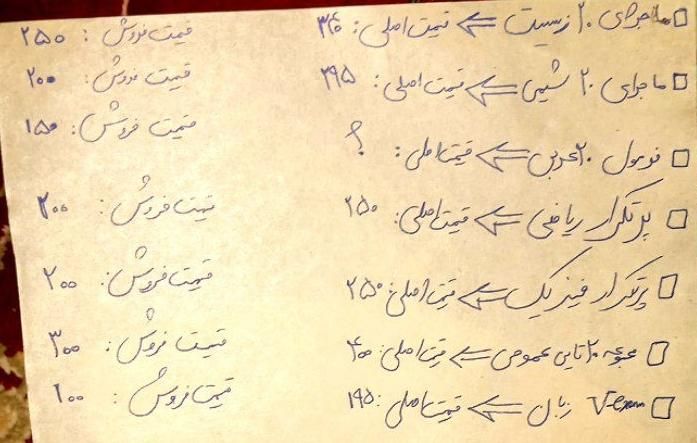 ماجرای ۲۰ زیست ⇐ قیمت اصلی: ۳۴۰ قیمت فروش: ۲۵۰
ماجرای ۲۰ شیمی ⇐ قیمت اصلی: ۲۹۵ قیمت فروش: ۲۰۰
فرمول ۲۰ عربی ⇐ قیمت اصلی: ؟ قیمت فروش: ۱۵۰
پرتکرار ریاضی ⇐ قیمت اصلی: ۲۵۰ قیمت فروش: ۲۰۰
پرتکرار فیزیک ⇐ قیمت اصلی: ۲۵۰ قیمت فروش: ۲۰۰
مجموعه ۲۰ تایی عمومی ⇐ قیمت اصلی: ۴۰۰ قیمت فروش: ۳۰۰
زبان ⇐ قیمت اصلی: ۱۹۵ قیمت فروش: ۱۰۰